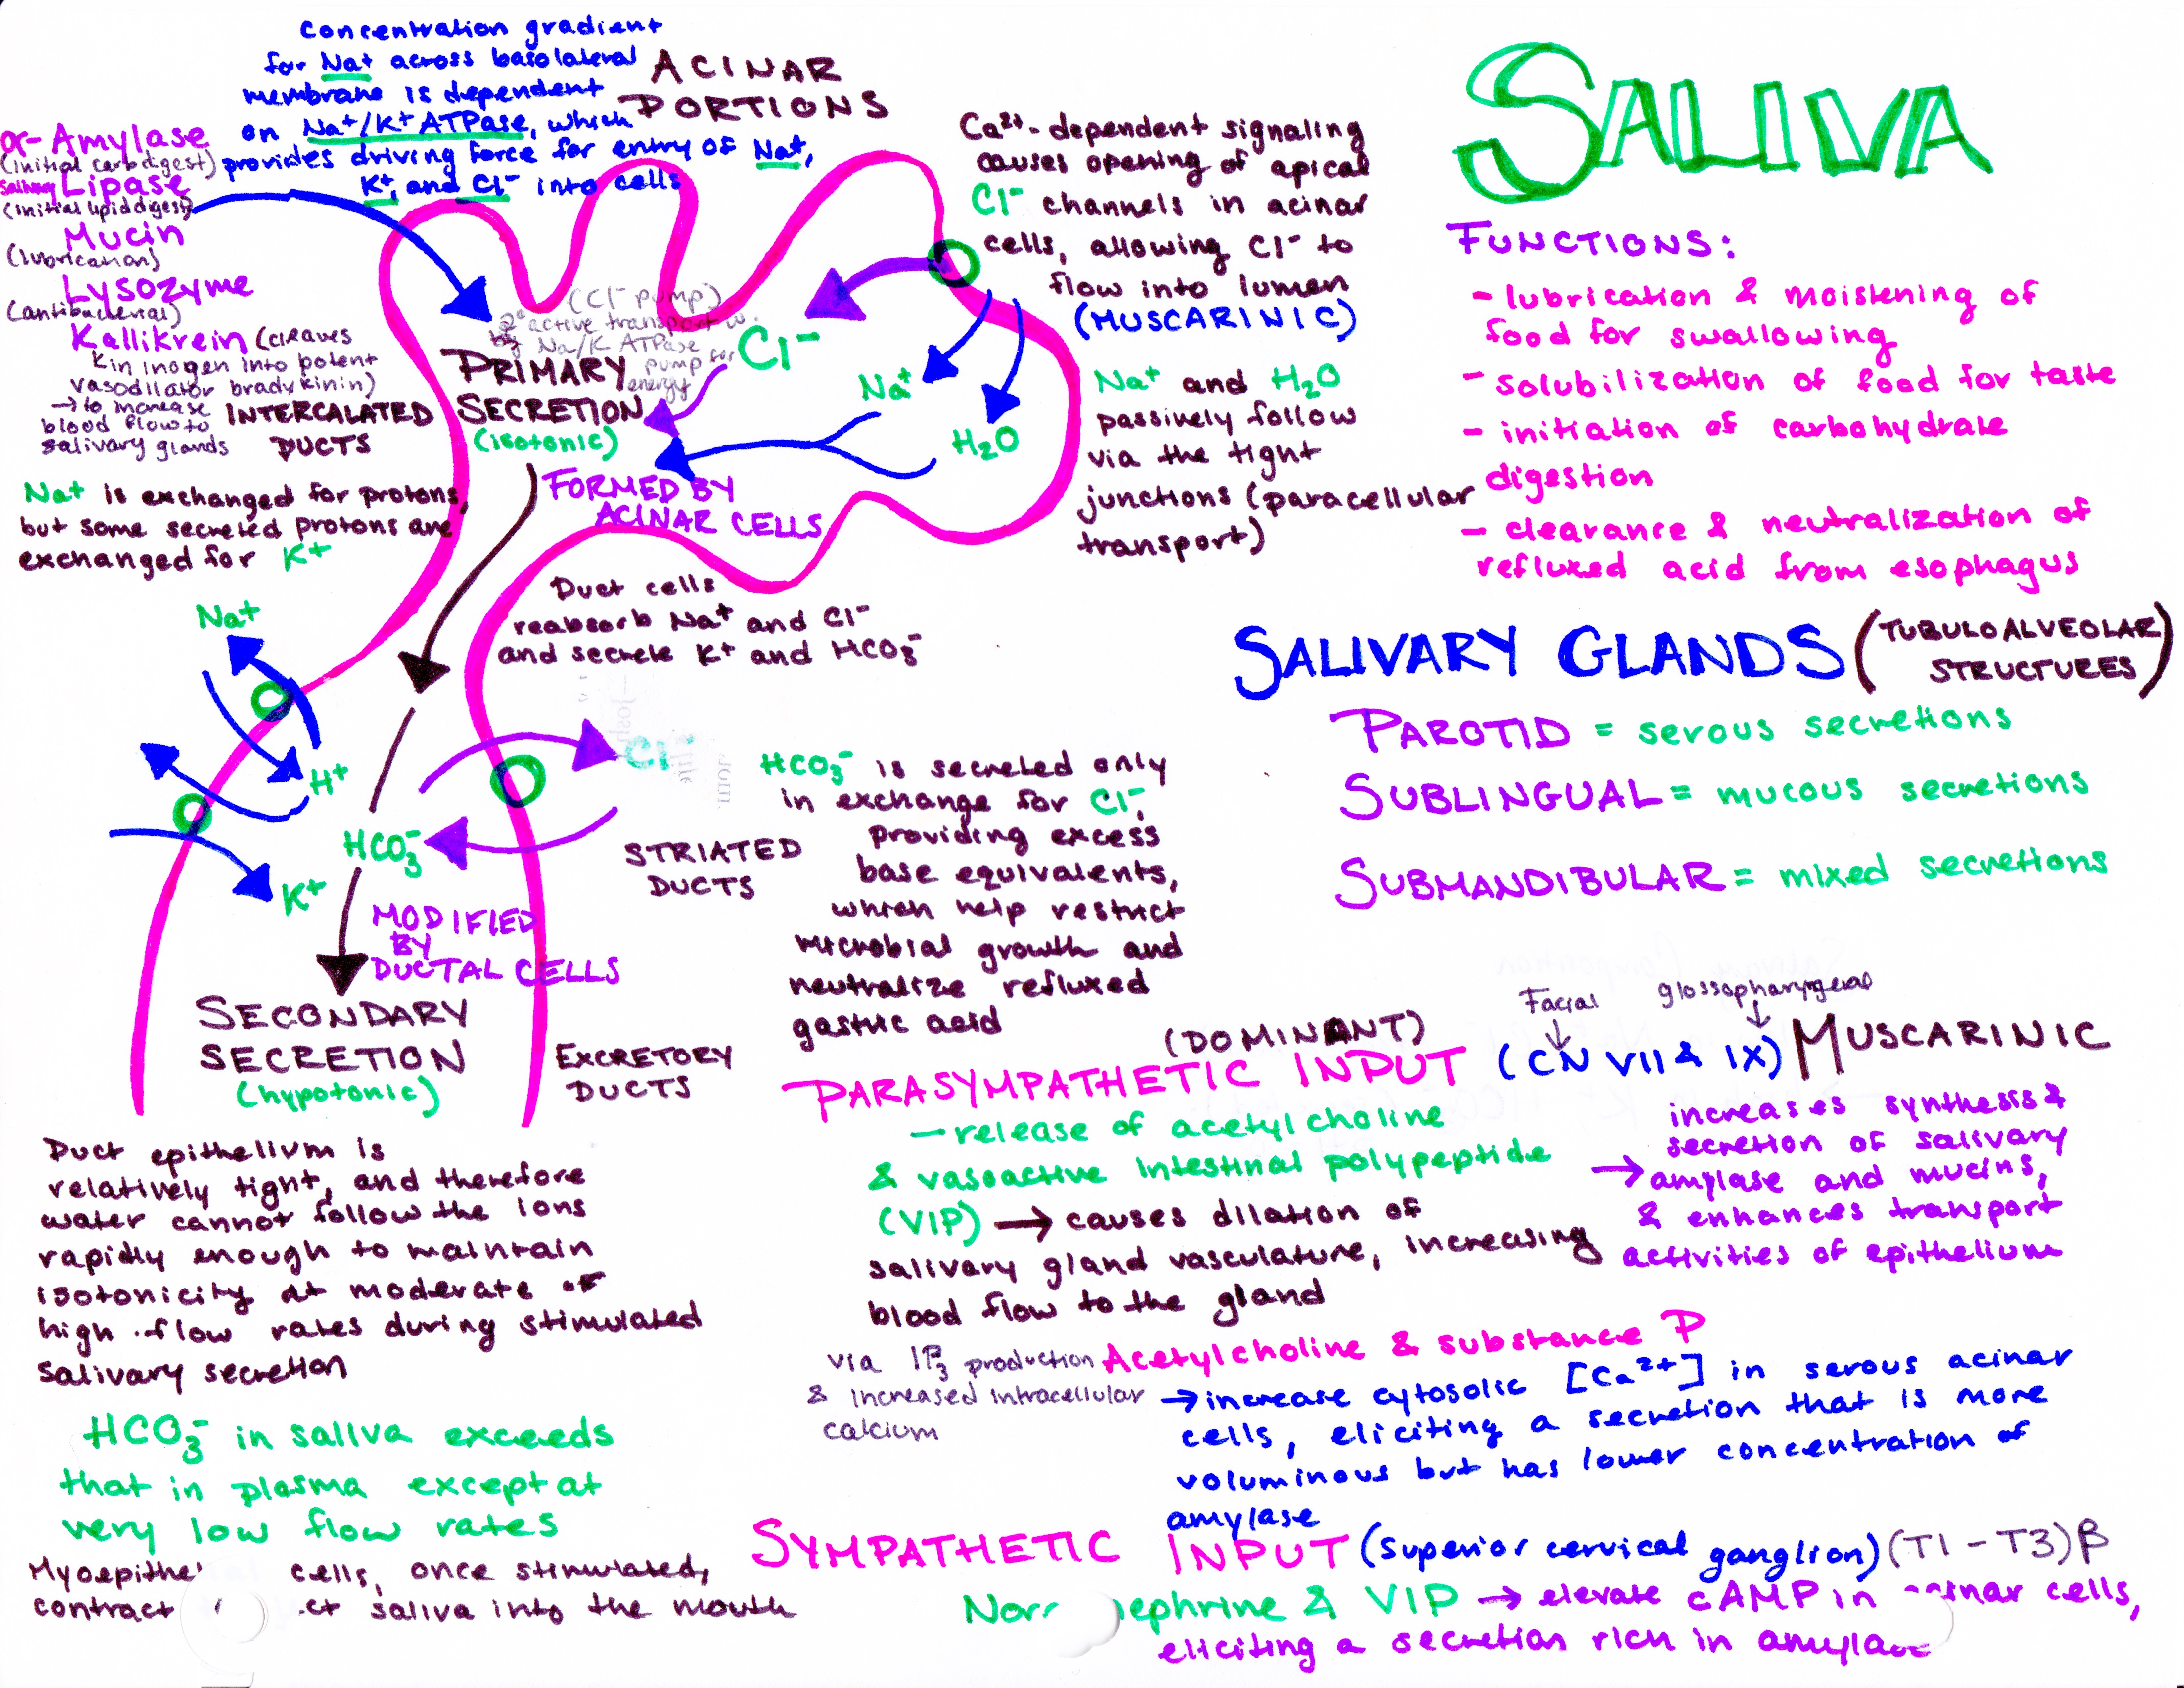 SALIVA
FUNCTIONS:
- lubrication & moistening of
food for swallowing
- solubilization of food for taste
- initiation of carbohydrate
digestion
- clearance & neutralization of
refluxed acid from esophagus
SALIVARY GLANDS (TUBULOALVEOLAR
STRUCTURES)
PAROTID = serous secretions
SUBLINGUAL = mucous secretions
SUBMANDIBULAR = mixed secretions
Concentration gradient
for Na+ across basolateral
membrane is dependent
on Na+/K+ ATPase, which
provides driving force for entry of Na+,
K+, and Cl- into cells
ACINAR
PORTIONS
α-Amylase
(initial carb digest)
Salivary Lipase
(initial lipid digest)
Mucin
(lubrication)
Lysozyme
(antibacterial)
Kallikrein (cleaves
kininogen into potent
vasodilator bradykinin)
→ to increase
blood flow to
salivary glands
INTERCALATED
DUCTS
Na+ is exchanged for protons,
but some secreted protons are
exchanged for K+
(Cl- pump)
2° active transport w.
Na/K ATPase
pump for
energy
PRIMARY
SECRETION
(isotonic)
FORMED BY
ACINAR CELLS
Cl-
Na+
H2O
Ca2+-dependent signaling
causes opening of apical
Cl- channels in acinar
cells, allowing Cl- to
flow into lumen
(MUSCARINIC)
Na+ and H2O
passively follow
via the tight
junctions (paracellular
transport)
Duct cells
reabsorb Na+ and Cl-
and secrete K+ and HCO3-
Na+
H+
K+
HCO3-
Cl-
STRIATED
DUCTS
HCO3- is secreted only
in exchange for Cl-,
providing excess
base equivalents,
which help restrict
microbial growth and
neutralize refluxed
gastric acid
MODIFIED
BY
DUCTAL CELLS
SECONDARY
SECRETION
(hypotonic)
EXCRETORY
DUCTS
Duct epithelium is
relatively tight, and therefore
water cannot follow the ions
rapidly enough to maintain
isotonicity at moderate or
high flow rates during stimulated
salivary secretion
HCO3- in saliva exceeds
that in plasma except at
very low flow rates
Myoepithe cells, once stimulated,
contract saliva into the mouth
(DOMINANT)
Facial glossopharyngeal
PARASYMPATHETIC INPUT (CN VII & IX) MUSCARINIC
- release of acetylcholine
& vasoactive intestinal polypeptide
(VIP) → causes dilation of
salivary gland vasculature, increasing
blood flow to the gland
increases synthesis &
secretion of salivary
→ amylase and mucins,
& enhances transport
activities of epithelium
via IP3 production
& increased intracellular
calcium
Acetylcholine & substance P
→ increase cytosolic [Ca2+] in serous acinar
cells, eliciting a secretion that is more
voluminous but has lower concentration of
amylase
SYMPATHETIC INPUT (superior cervical ganglion) (T1-T3) β
Nor ephrine & VIP → elevate cAMP in cells,
eliciting a secretion rich in amylase